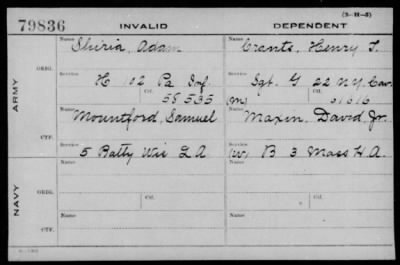 (3-H-5)
79836 INVALID DEPENDENT
Name Shiria, Adam Name Crants, Henry T.
ORIG.
Service H 12 Pa Inf Service Sgt. G 22 N.Y. Cav.
Ctf. 58535 (M) Ctf. 51616
ARMY
Name Mountford, Samuel Name Maxin, David, Jr.
CTF.
Service 5 Batty Wis L A Service (W) B 3 Mass H A.
Name Name
ORIG.
Service Ctf. Service Ctf.
NAVY
Name Name
CTF.
Service Service